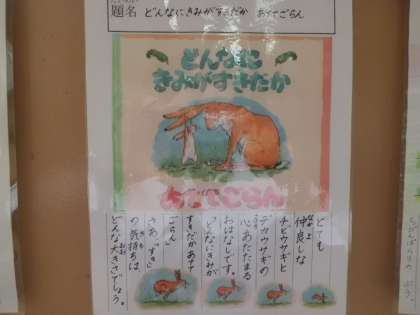 題名 どんなにきみがすきだか あててごらん
どんなに
きみがすきだか
あててごらん
とても
仲良しな
チビウサギと
デカウサギの
心あたたまる
おはなしです。
「どんなにきみが
すきだかあてて
ごらん
さあ、すき
の気持ちは、
どんな大きさでしょう。